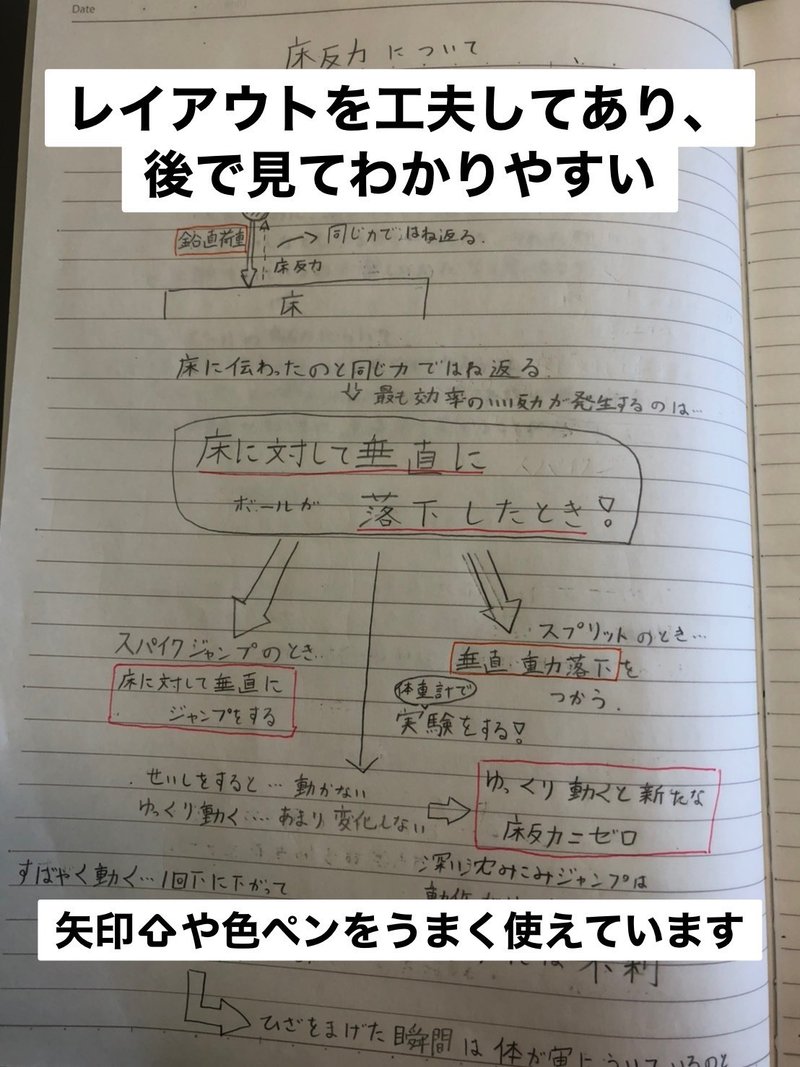 Date
床反力について
レイアウトを工夫してあり、
後で見てわかりやすい
鉛直荷重
同じ力ではね返る.
床反力
床
床に伝わったのと同じ力ではね返る
最も効率のいい反力が発生するのは…
床に対して垂直に
ボールが 落下したとき!
スパイクジャンプのとき…
床に対して垂直に
ジャンプをする
スプリットのとき…
垂直・重力落下を
つかう.
体重計で
実験をする!
せいしをすると…動かない
ゆっくり動く…あまり変化しない
ゆっくり動くと新たな
床反力=ゼロ
すばやく動く…1回下に下がって
深い沈みこみジャンプは
矢印⇧や色ペンをうまく使えています
不利
ひざをまげた瞬間は体が宙にういているのと